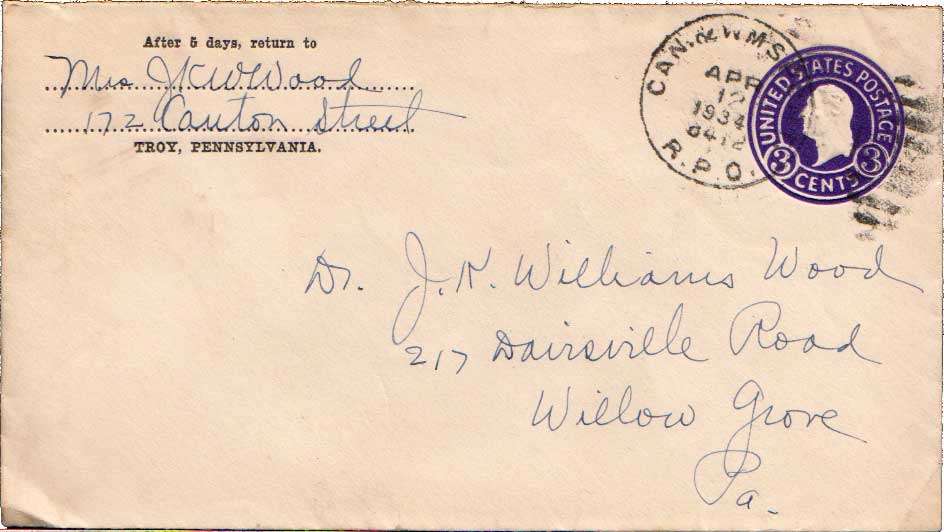 After 5 days, return to
Mrs JKW Wood
172 Canton Street
TROY, PENNSYLVANIA.
CAN. & WMS
APR
12
1934
R.P.O.
UNITED STATES POSTAGE
3 CENTS 3
Dr. J. K. Williams Wood
217 Davisville Road
Willow Grove
Pa.